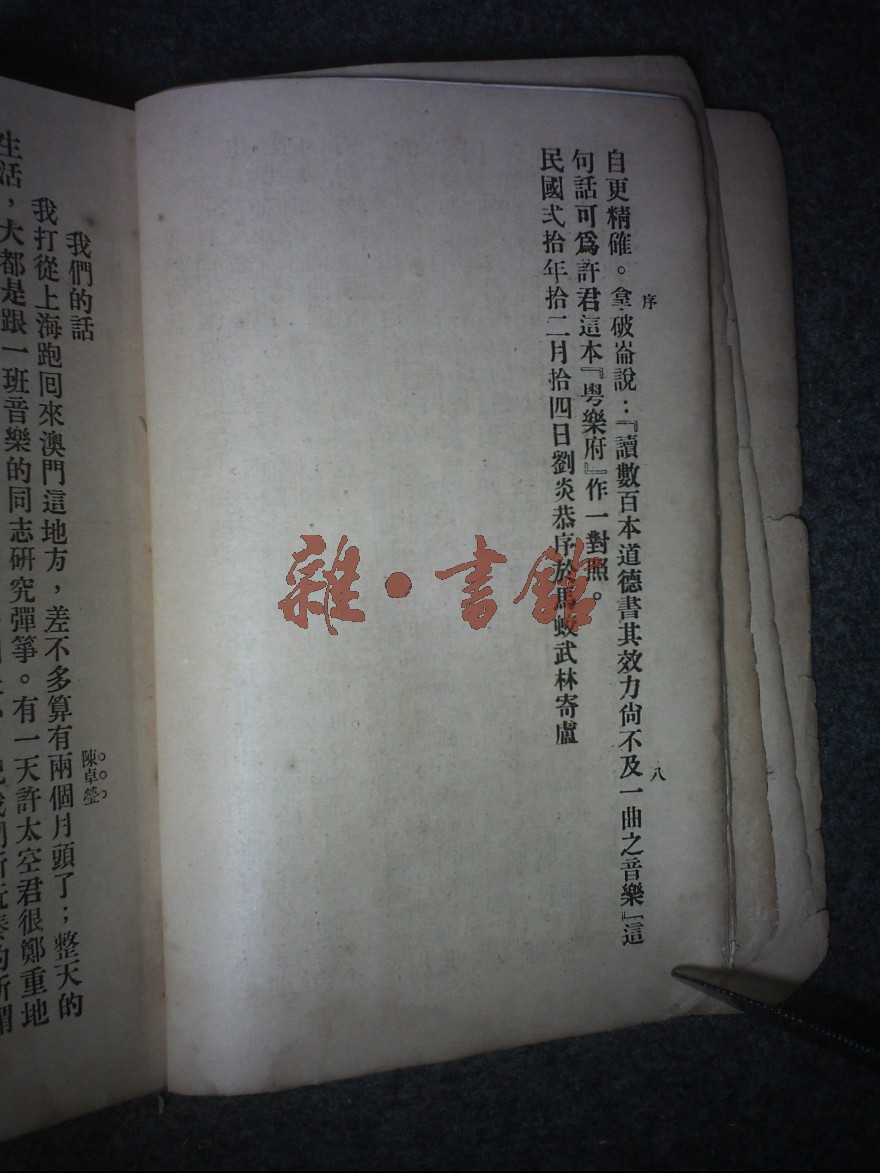 序
八
自更精確。拿破崙說：『讀數百本道德書其效力尙不及一曲之音樂』這
句話可爲許君這本『粵樂府』作一對照。
民國弍拾年拾二月拾四日劉炎恭序於馬蛟武林寄盧
雜·書館
我們的話
陳卓瑩
我打從上海跑囘來澳門這地方，差不多算有兩個月頭了；整天的
生活，大都是跟一班音樂的同志研究彈箏。有一天許太空君很鄭重地